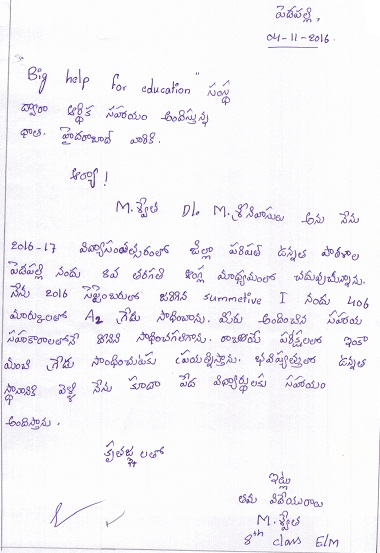 పెదపల్లి,
04-11-2016
"Big help for education" సంస్థ
ద్వారా ఆర్థిక సహాయం అందిస్తున్న
దాత. హైదరాబాద్ వారికి.
ఆర్యా!
M. శ్వేత D/o M. శ్రీనివాసులు అను నేను
2016-17 విద్యాసంవత్సరంలో జిల్లా పరిషత్ ఉన్నత పాఠశాల
పెదపల్లి నందు 8వ తరగతి ఇంగ్లీష్ మాధ్యమంలో చదువుచున్నాను.
నేను 2016 సెప్టెంబరులో జరిగిన summetive I నందు 406
మార్కులతో A2 గ్రేడు సాధించాను. మీరు అందించిన సహాయ
సహకారాలతోనే దీనిని సాధించగలిగాను. రాబోయే పరీక్షలలో ఇంకా
మంచి గ్రేడు సాధించుటకు ప్రయత్నిస్తాను. భవిష్యత్తులో ఉన్నత
స్థానానికి వెళ్ళి నేను కూడా పేద విద్యార్థులకు సహాయం
అందిస్తాను.
కృతజ్ఞతలతో
ఇట్లు
తమ విధేయురాలు
M. శ్వేత
8th class E/M